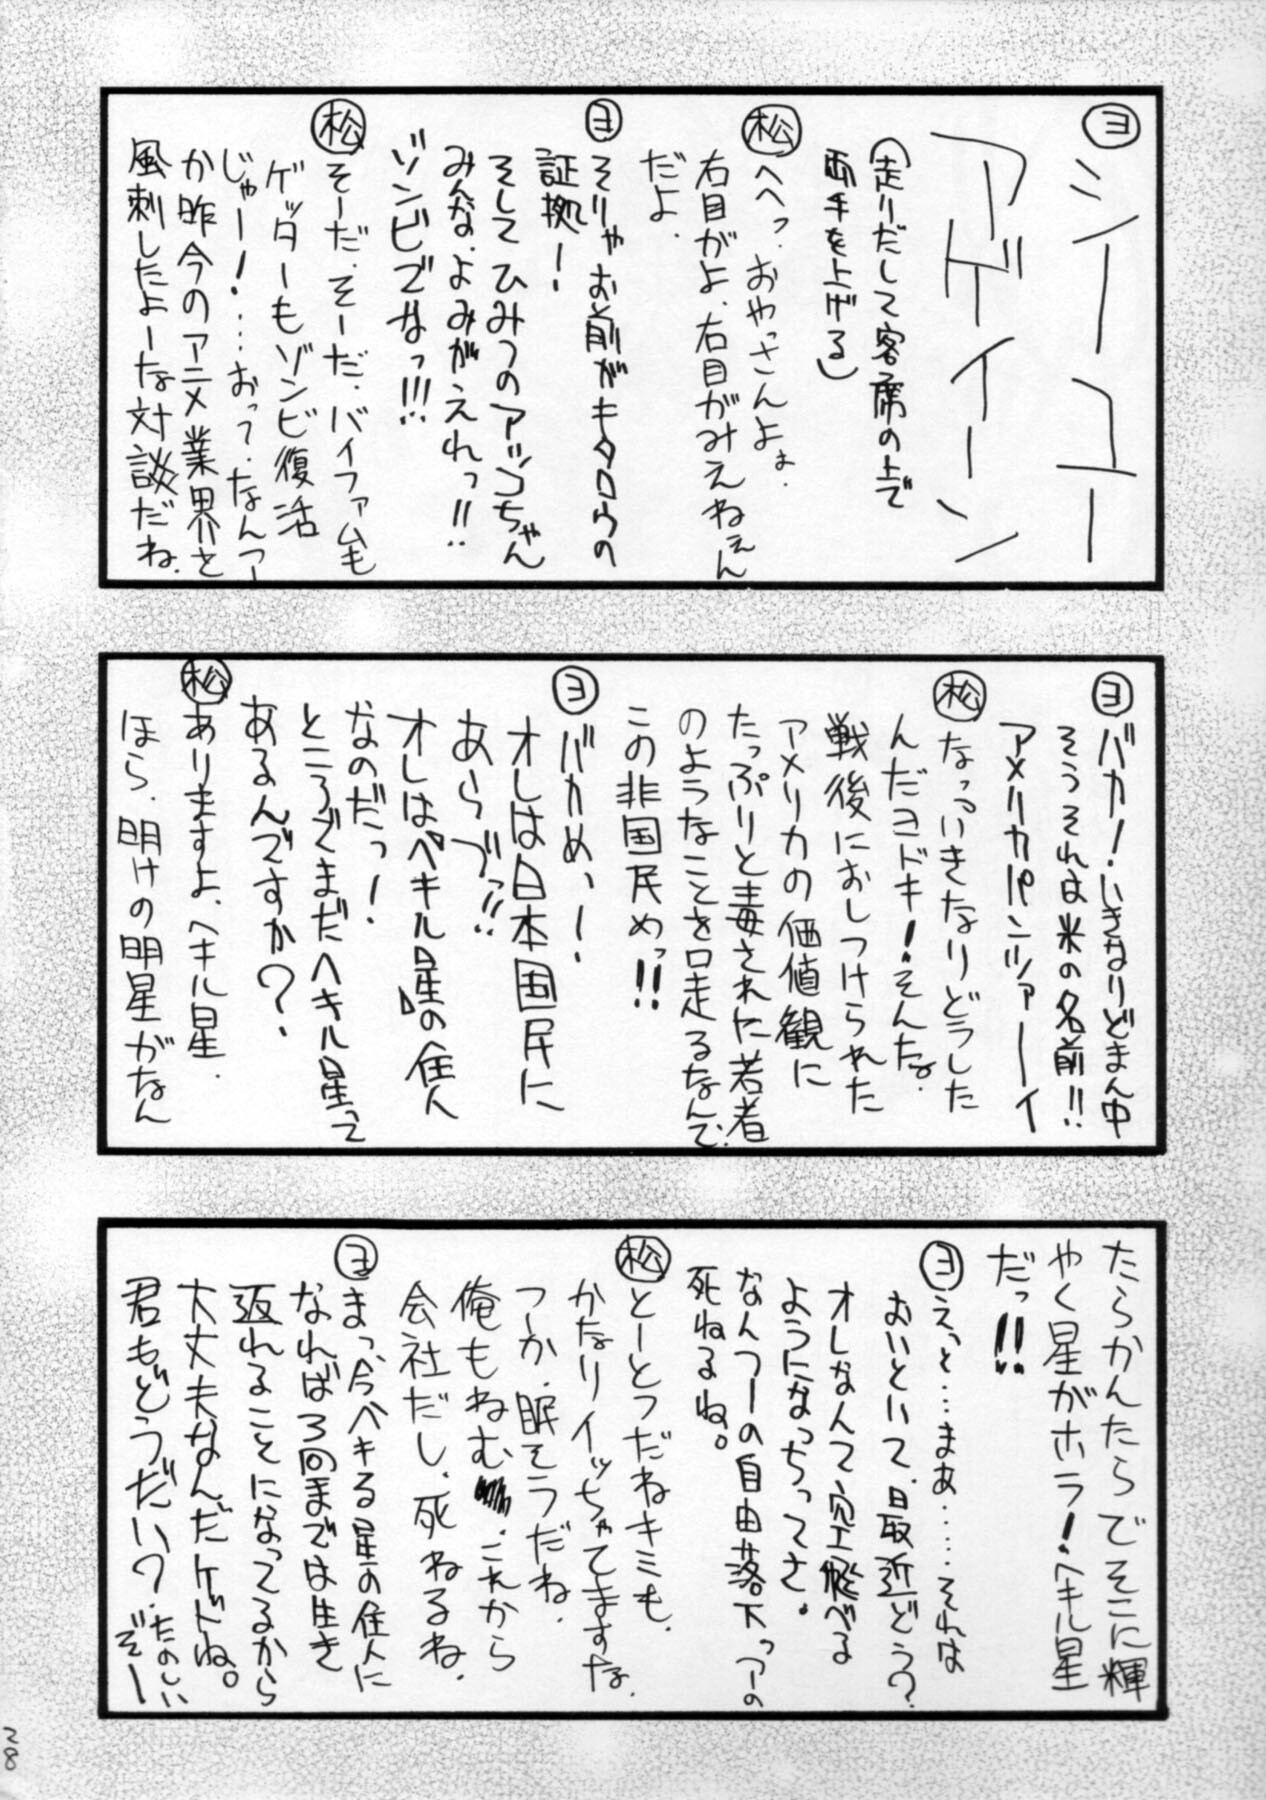 ヨ シーユー
アゲイン
(走りだして客席の上で
両手を上げる)
松 へへっ、おやっさんよぉ.
右目がよ、右目がみえねぇん
だよ.
ヨ そりゃお前がキタロウの
証拠!
そして ひみつのアッコちゃん
みんな、よみがえれっ!!
ゾンビでなっ!!!
松 そーだ、そーだ、バイファムも
ゲッターもゾンビ復活
じゃー!…おって、なんつー
か昨今のアニメ業界を
風刺したよーな対談だね.
ヨ バカ!いきなりどまん中
そうそれは米の名前!!
アメリカパンツァーイ
松 なっ、いきなりどうした
んだヨドキ!そんな.
戦後におしつけられた
アメリカの価値観に
たっぷりと毒された若者
のようなことを口走るなんて.
この非国民めっ!!
ヨ バカめっ!
オレは日本国民に
あらヅっ!!
オレは『ペキル星』の住人
なのだっ!
ところでまだヘキル星って
あるんですか?.
松 ありますよ、ヘキル星.
ほら、明けの明星がなん
たらかんたらでそこに輝
やく星がホラ!ヘキル星
だっ!!
ヨ えっと…まあ……それは
おいといて、最近どう?
オレなんて空飛べる
ようになっちってさ。
なんつーの自由落下っつーの
死ねるね。
松 とーとつだねキミも.
かなりイッちゃてますな.
つーか、眠そうだね.
俺もねむ、これから
会社だし、死ねるね.
ヨ まっ、今ペキる星の住人に
なれば3回までは生き
返れることになってるから
大丈夫なんだケドね。
君もどうだい?.たのしい
ぞー
28